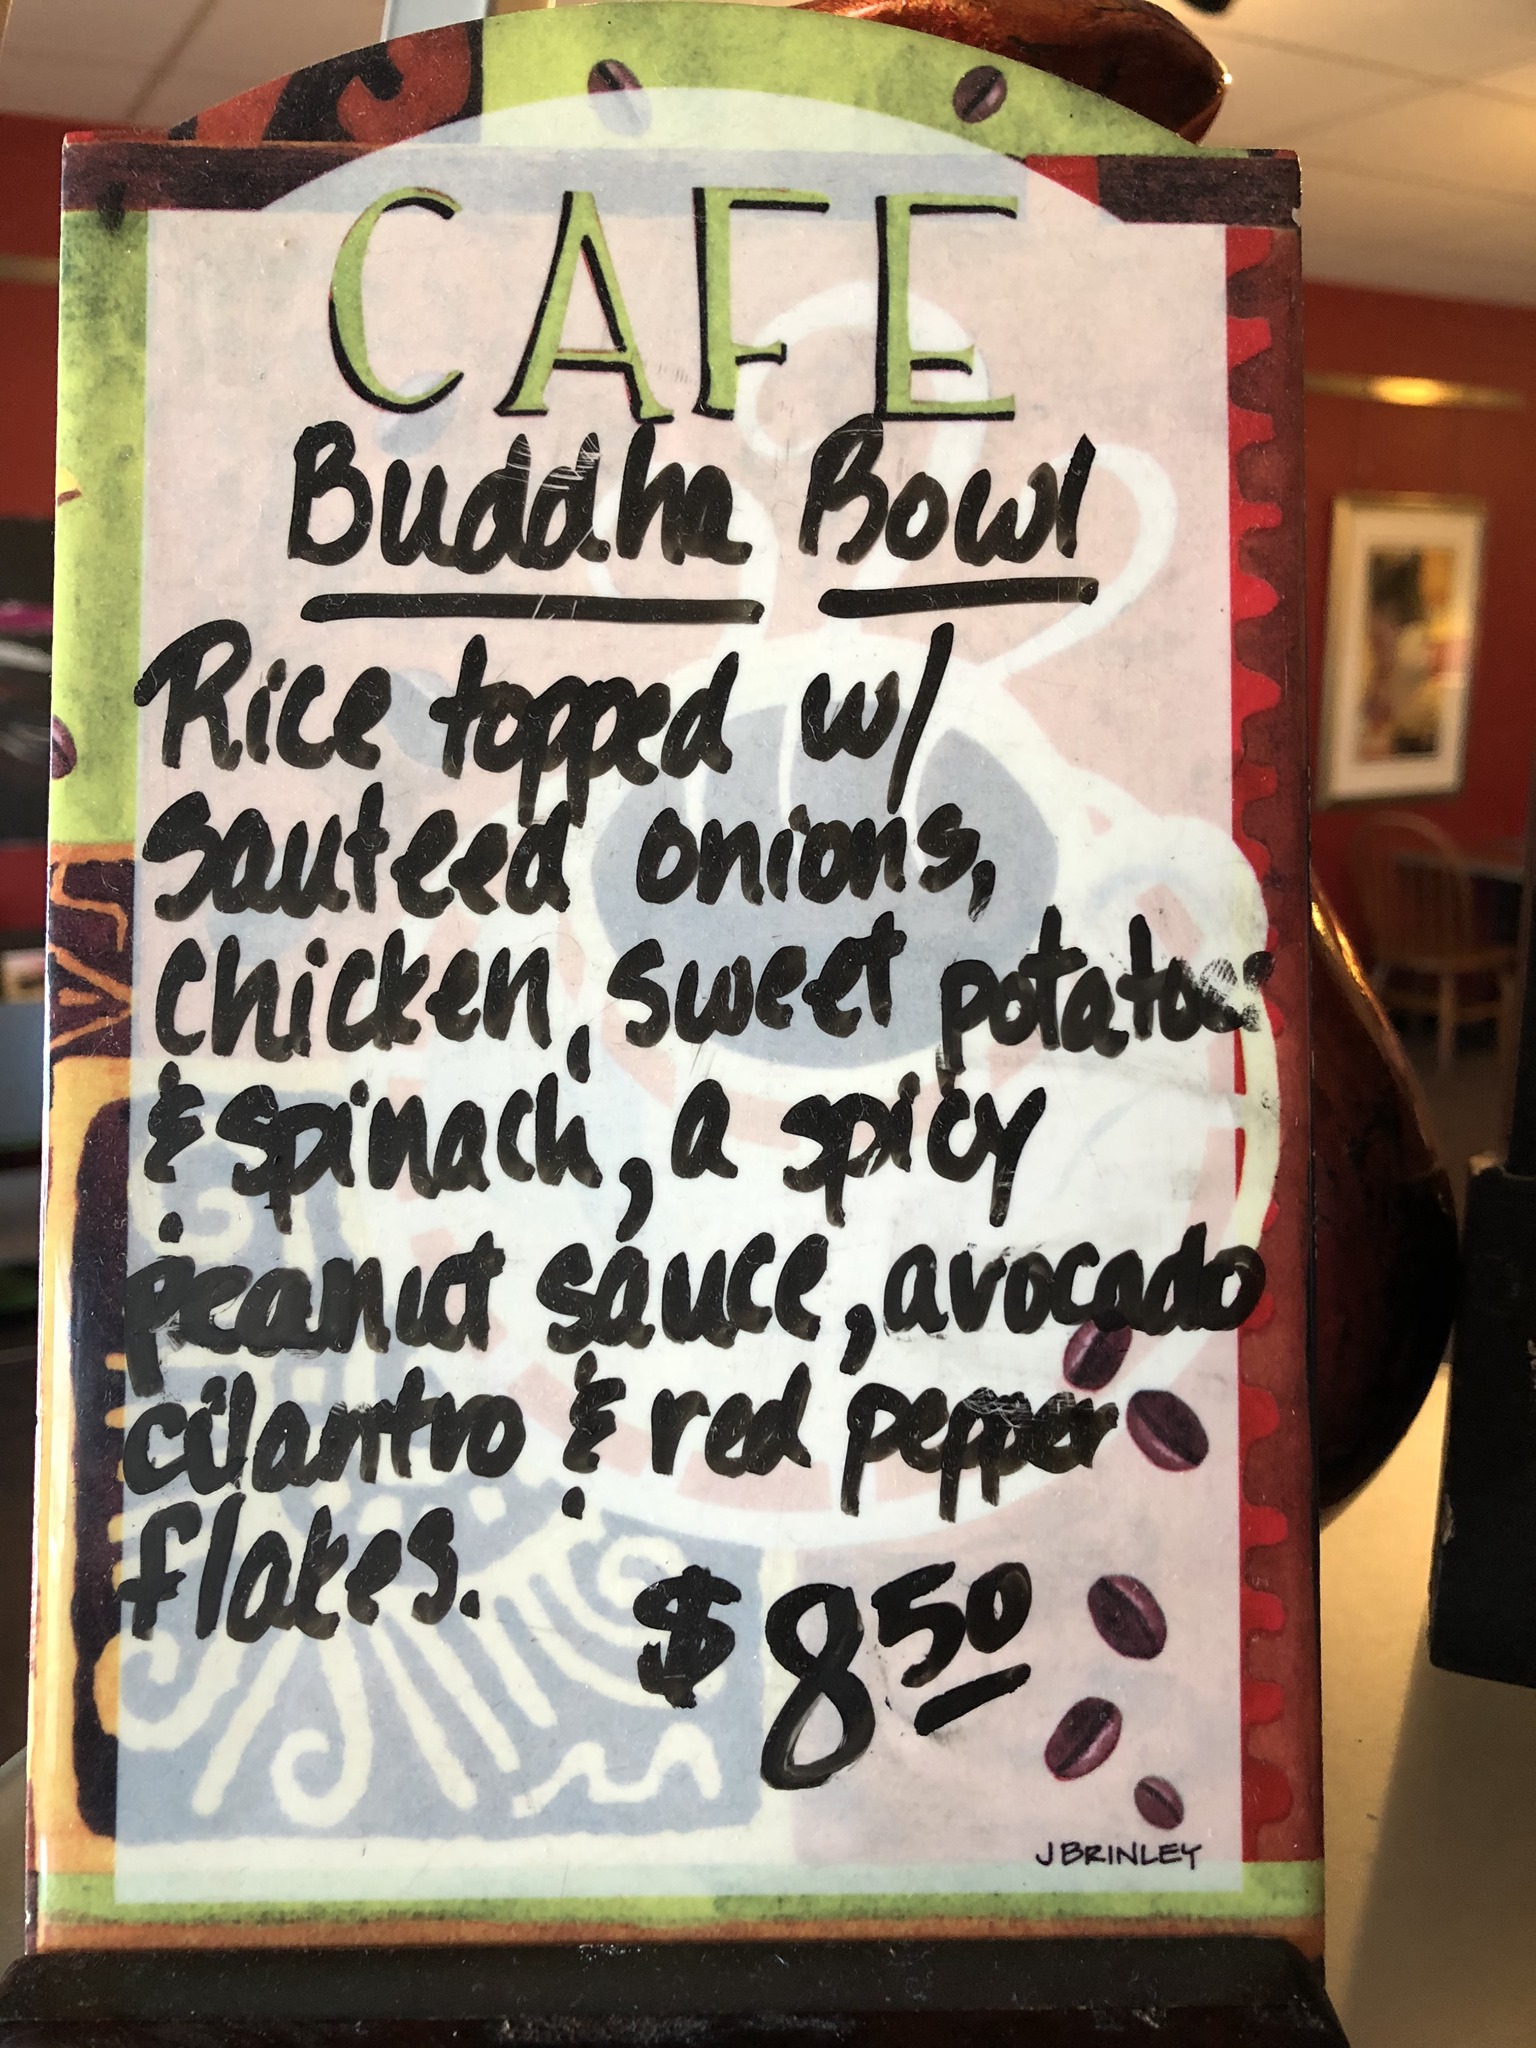 CAFE
Buddha Bowl
Rice topped w/
sauteed onions,
chicken, sweet potatoes
& spinach, a spicy
peanut sauce, avocado
cilantro & red pepper
flakes.
$8.50
J BRINLEY